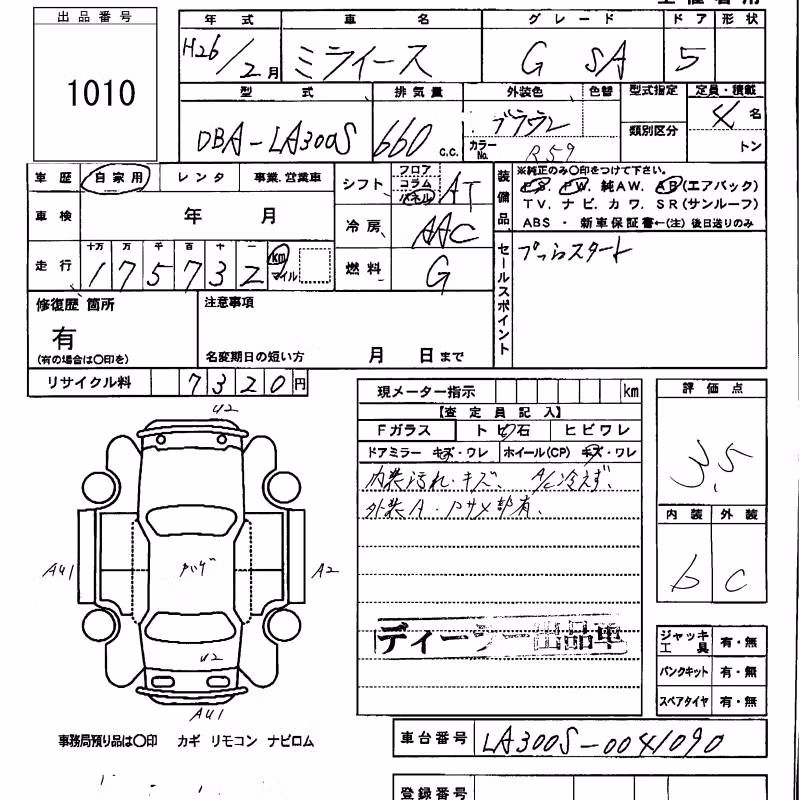 出品番号
1010
年式 車名 グレード ドア 形状
H26/2月 ミライース G SA 5
型式 排気量 外装色 色替 型式指定 定員・積載
DBA-LA300S 660 c.c. ブラウン 類別区分 4名
カラーNo. R59 トン
車歴 自家用 レンタ 事業.営業車
車検 年 月
走行 十万 万 千 百 十 一 km マイル
175732
シフト フロア コラム パネル AT
冷房 AAC
燃料 G
装備品
※純正のみ〇印をつけて下さい。
PS. PW. 純AW. AB(エアバック)
TV. ナビ. カワ. SR(サンルーフ)
ABS ・ 新車保証書←(注) 後日送りのみ
セールスポイント
プッシュスタート
修復歴 箇所
有
(有の場合は〇印を)
注意事項
名変期日の短い方 月 日まで
リサイクル料 7320円
現メーター指示 km
【査定員記入】
Fガラス トビ石 ヒビワレ
ドアミラー キズ・ワレ ホイール(CP) キズ・ワレ
内装汚れ・キズ、 A/C冷えず.
外装A・Pサメ部有、
ディーラー出品車
評価点
3.5
内装 外装
b C
ジャッキ工具 有・無
パンクキット 有・無
スペアタイヤ 有・無
U2
AU1
A2
U2
AU1
事務局預り品は〇印 カギ リモコン ナビロム
車台番号 LA300S-0041090
登録番号